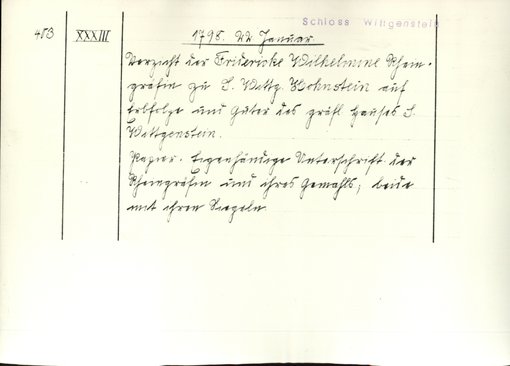 Schloss Wittgenstein
453 XXXIII 1798. 22 Januar.
Verzicht der Friedericke Wilhelmine Rhein-
gräfin zu S. Wittg. Hohnstein auf
Erbfolge und Güter des gräfl. Hauses S.
Wittgenstein.
Papier. Eigenhändige Unterschrift der
Rheingräfin und ihres Gemahls; beide
mit ihren Siegeln.